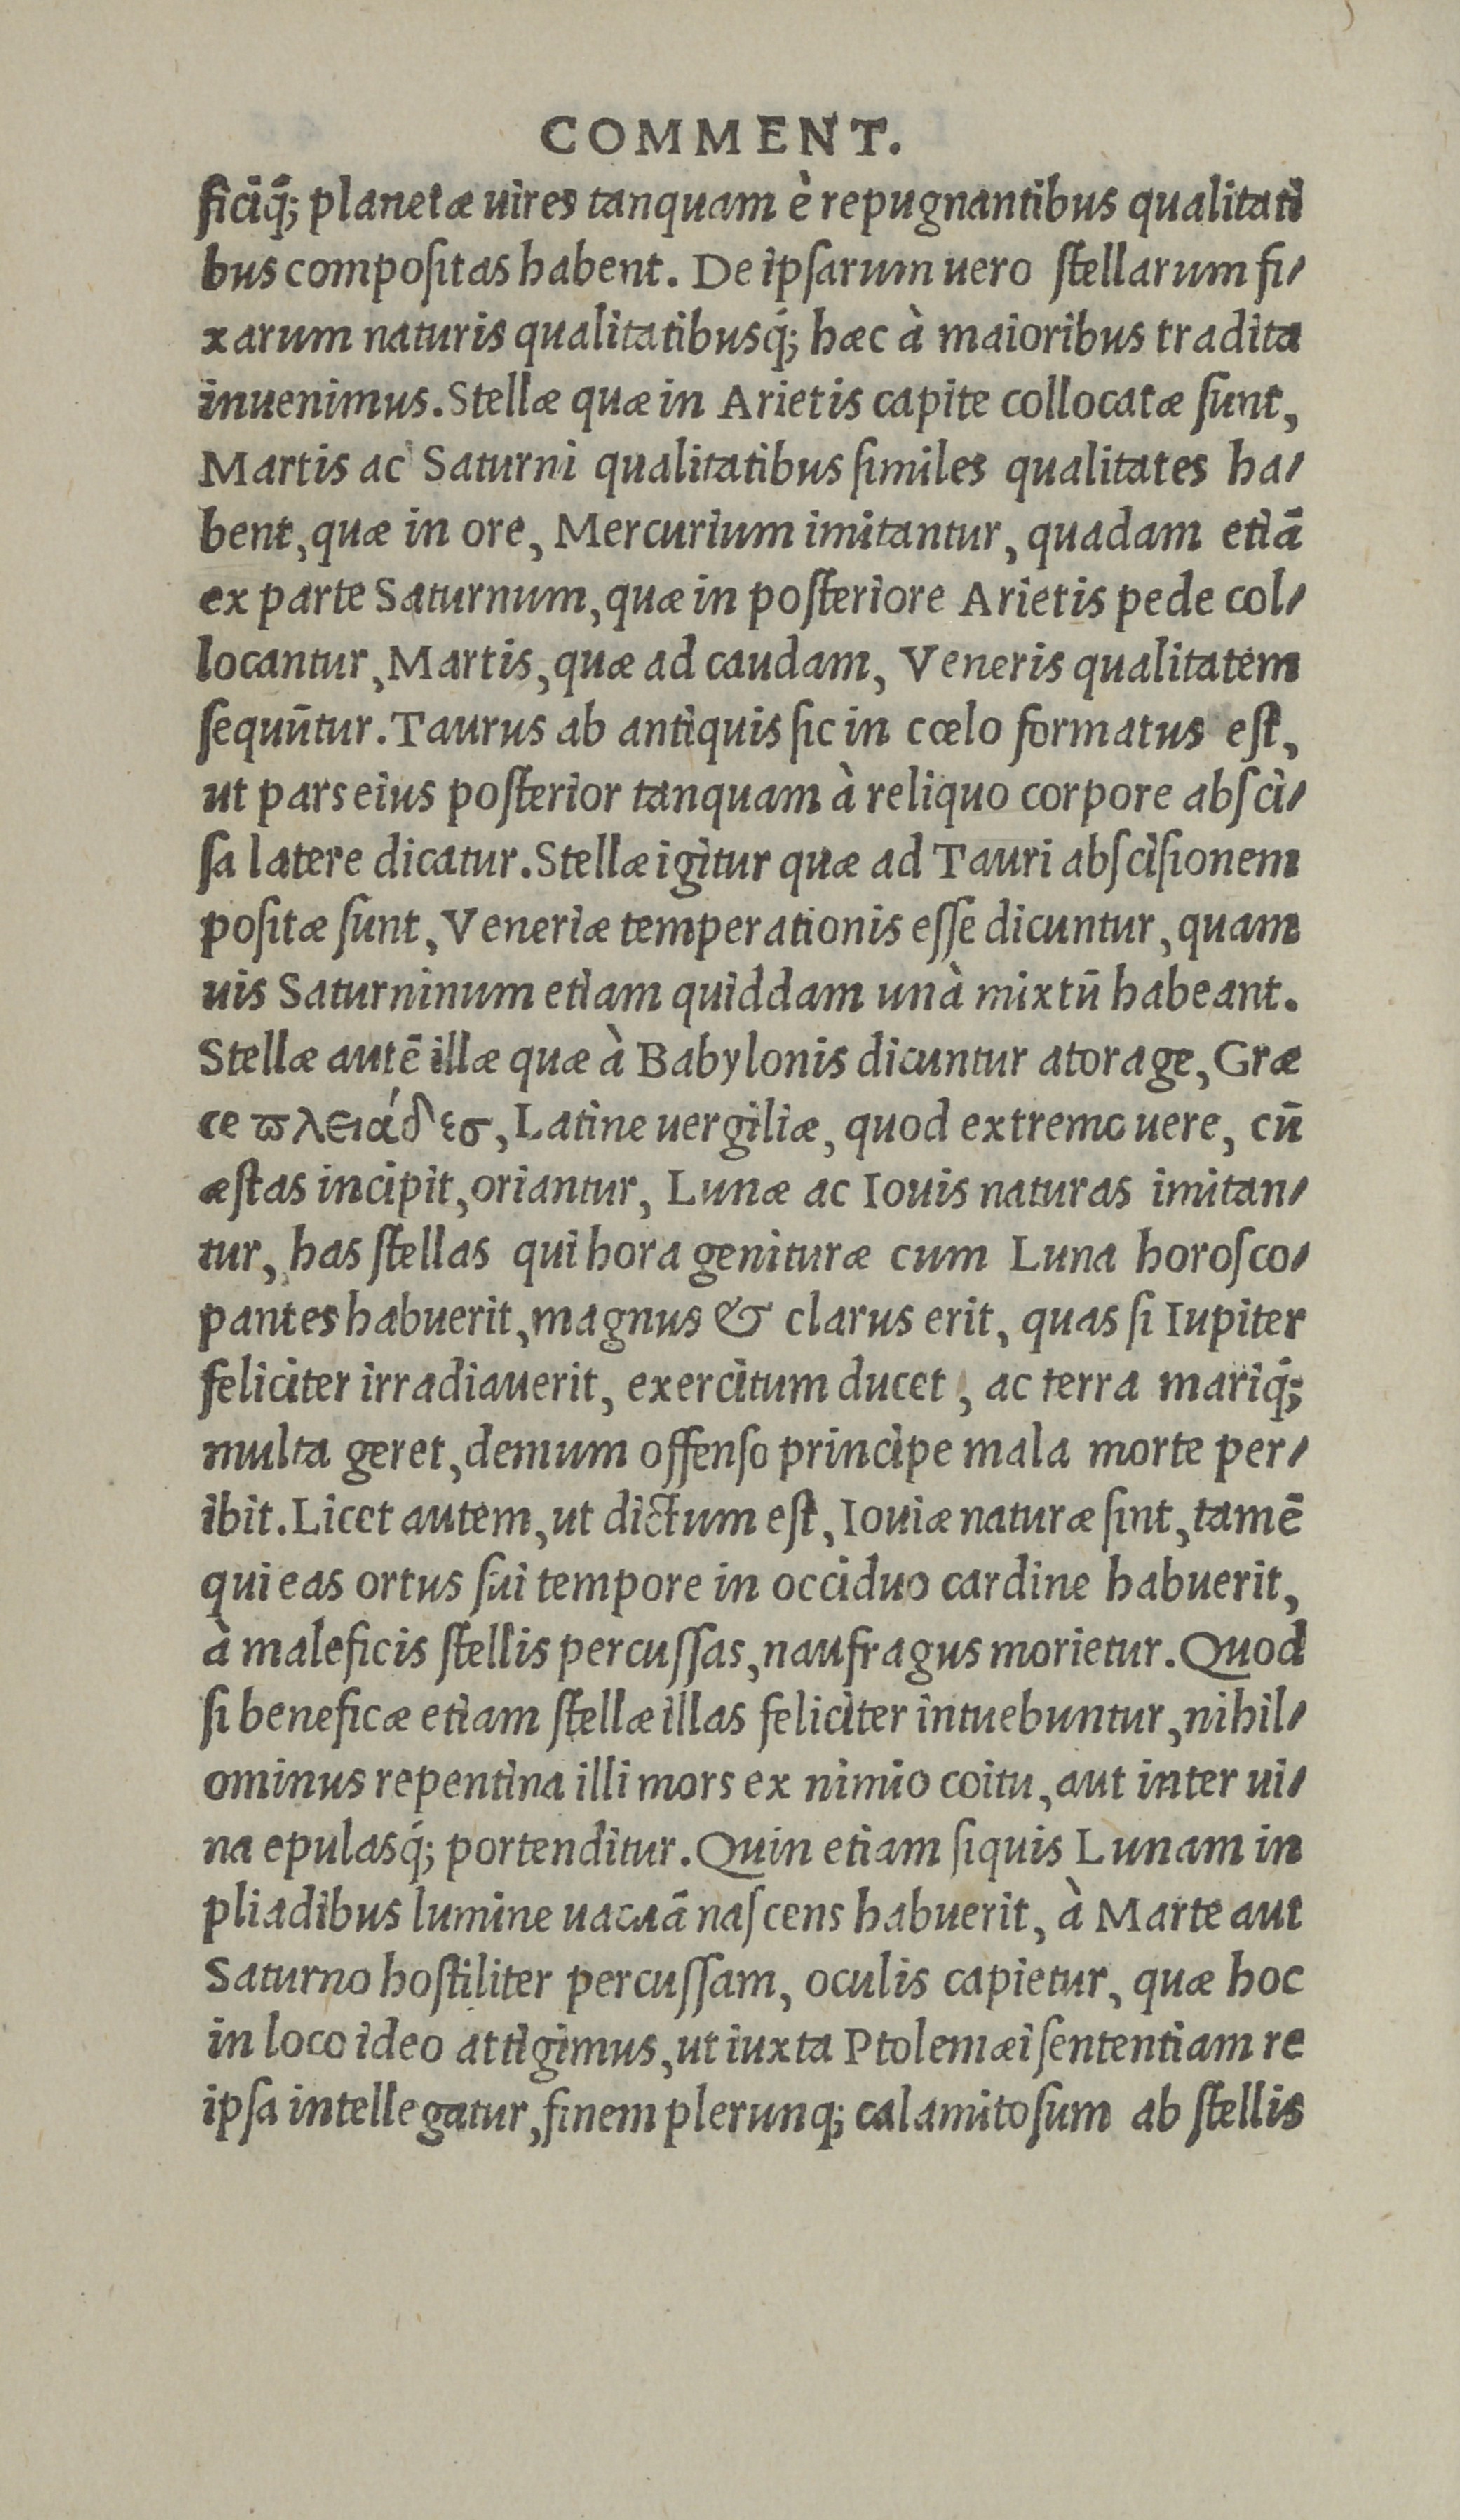 COMMENT.
ficiq̃; planetæ uires tanquam è repugnantibus qualitati
bus compoſitas habent. De ipſarum uero ſtellarum fi/
xarum naturis qualitatibusq́; hæc à maioribus tradita
inuenimus. Stellæ quæ in Arietis capite collocatæ ſunt,
Martis ac Saturni qualitatibus ſimiles qualitates ha/
bent, quæ in ore, Mercurium imitantur, quadam etiã
ex parte Saturnum, quæ in poſteriore Arietis pede col/
locantur, Martis, quæ ad caudam, Veneris qualitatem
ſequũtur. Taurus ab antiquis ſic in cœlo formatus eſt,
ut pars eius poſterior tanquam à reliquo corpore abſci/
ſa latere dicatur. Stellæ igitur quæ ad Tauri abſciſionem
poſitæ ſunt, Veneriæ temperationis eſſe dicuntur, quam
uis Saturninum etiam quiddam unà mixtũ habeant.
Stellæ autẽ illæ quæ à Babylonis dicuntur atorage, Græ
ce ϖλειάδεσ, Latine uergiliæ, quod extremo uere, cũ
æſtas incipit, oriantur, Lunæ ac Iouis naturas imitan/
tur, has ſtellas qui hora genituræ cum Luna horoſco/
pantes habuerit, magnus & clarus erit, quas ſi Iupiter
feliciter irradiauerit, exercitum ducet, ac terra mariq́;
multa geret, demum offenſo principe mala morte per/
ibit. Licet autem, ut dictum eſt, Iouiæ naturæ ſint, tamẽ
qui eas ortus ſui tempore in occiduo cardine habuerit,
à maleficis ſtellis percuſſas, naufragus morietur. Quod
ſi beneficæ etiam ſtellæ illas feliciter intuebuntur, nihil/
ominus repentina illi mors ex nimio coitu, aut inter ui/
na epulasq́; portenditur. Quin etiam ſiquis Lunam in
pliadibus lumine uacuã naſcens habuerit, à Marte aut
Saturno hoſtiliter percuſſam, oculis capietur, quæ hoc
in loco ideo attigimus, ut iuxta Ptolemæi ſententiam re
ipſa intellegatur, finem plerunq; calamitoſum ab ſtellis